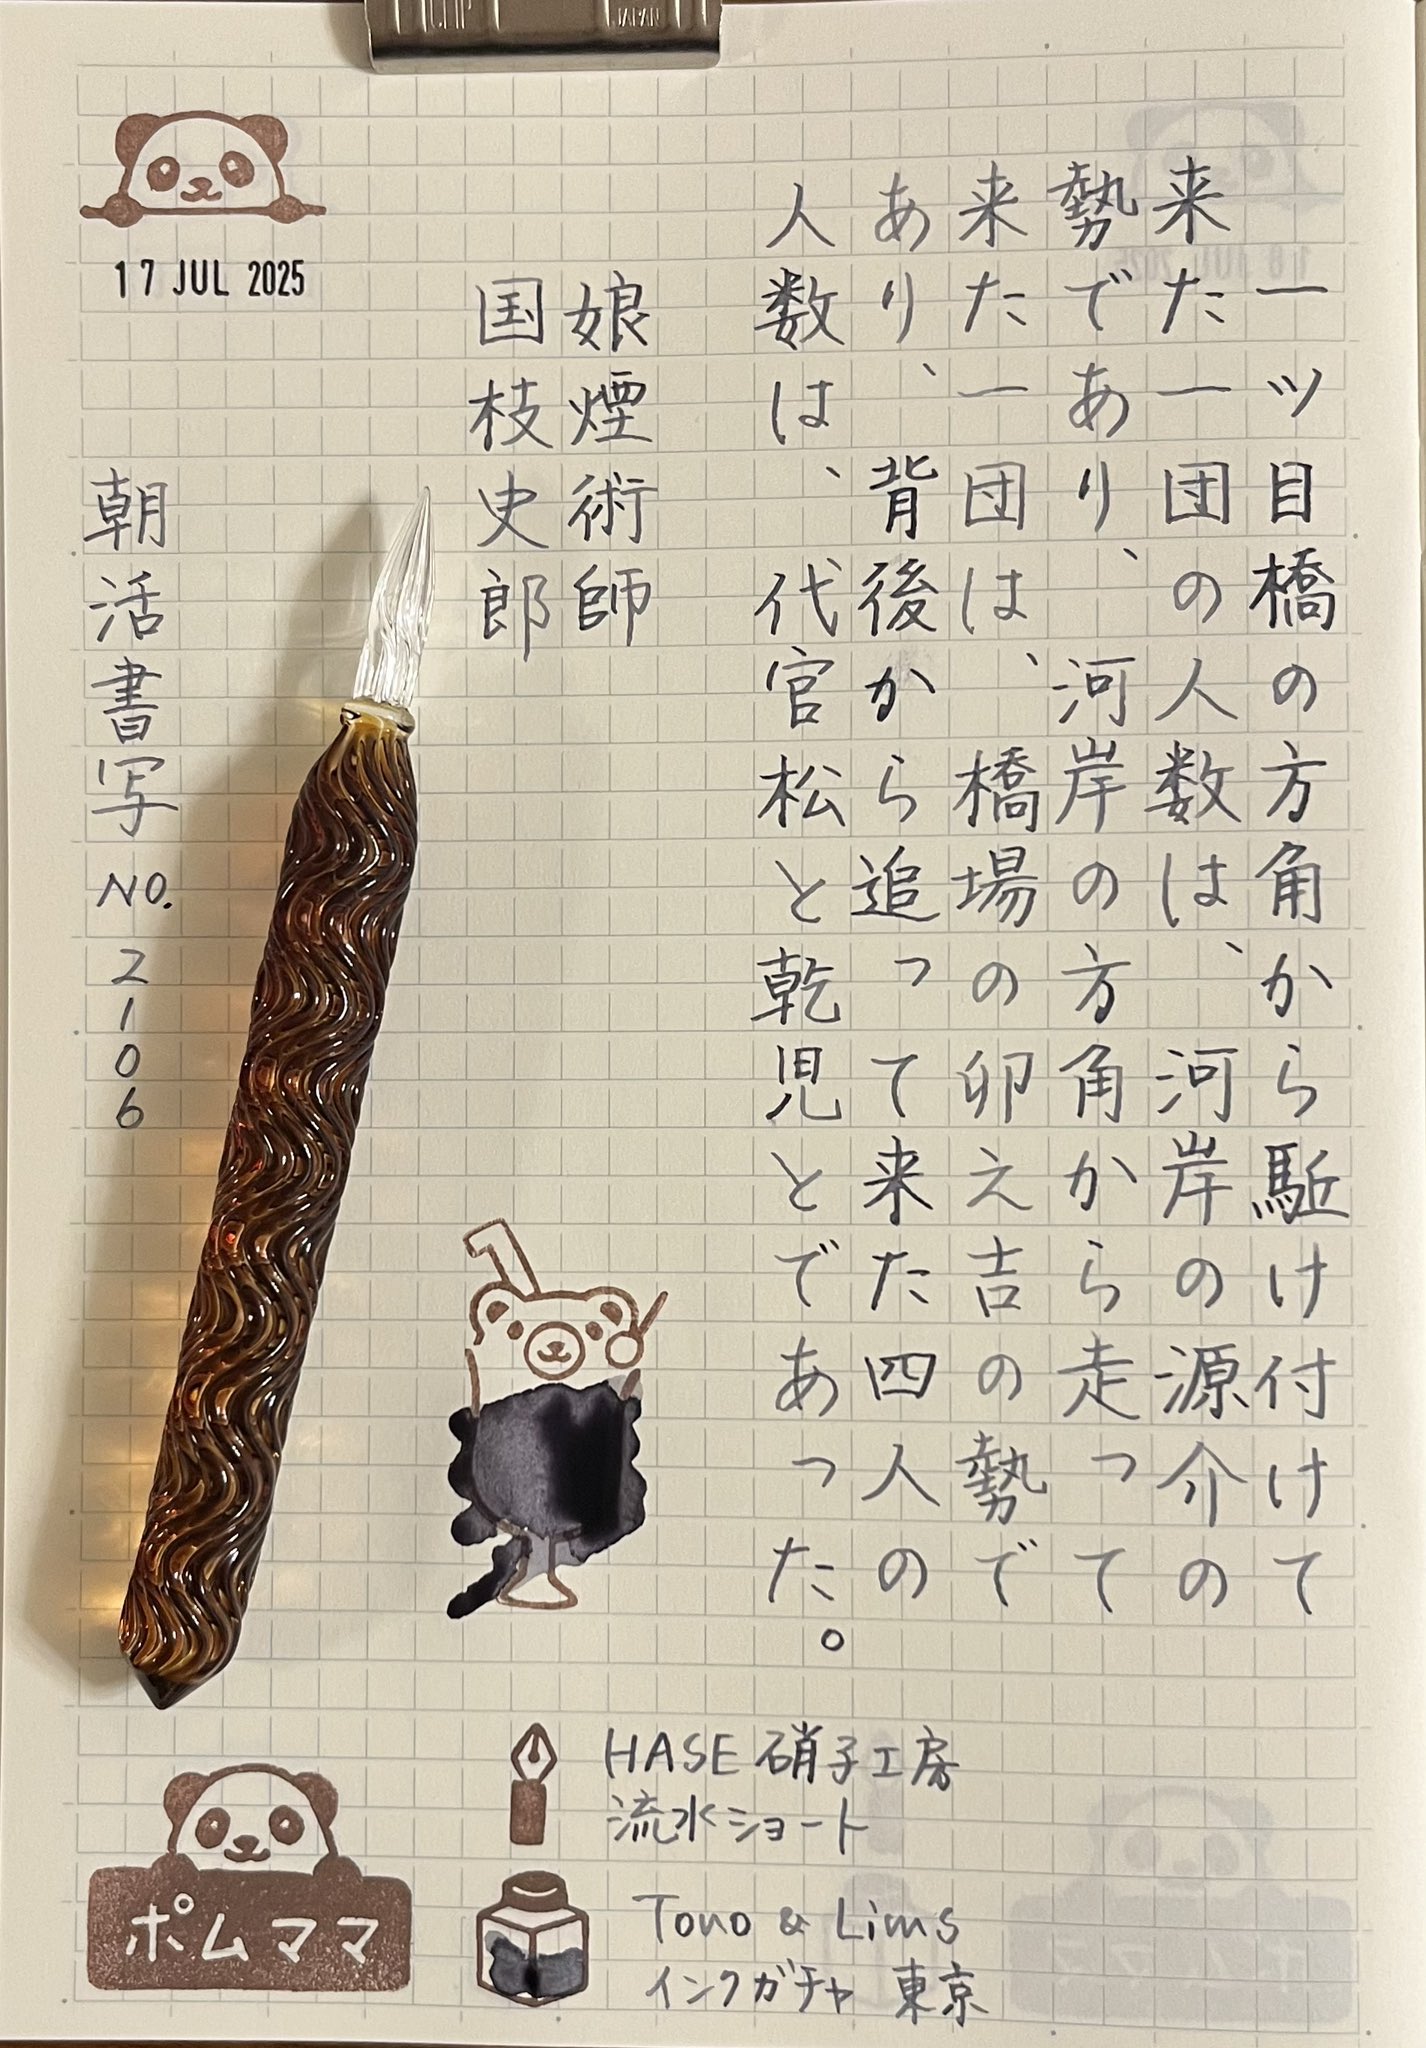 CLIP
JAPAN
17 JUL 2025
一ツ目橋の方角から駈け付けて
来た一団の人数は、河岸の源介の
勢であり、河岸の方角から走って
来た一団は、橋場の卯え吉の勢で
あり、背後から追って来た四人の
人数は、代官松と乾児とであった。
娘煙術師
国枝史郎
朝活書写 NO.2106
HASE 硝子工房
流水ショート
Tono & Lims
インクガチャ 東京
ポムママ